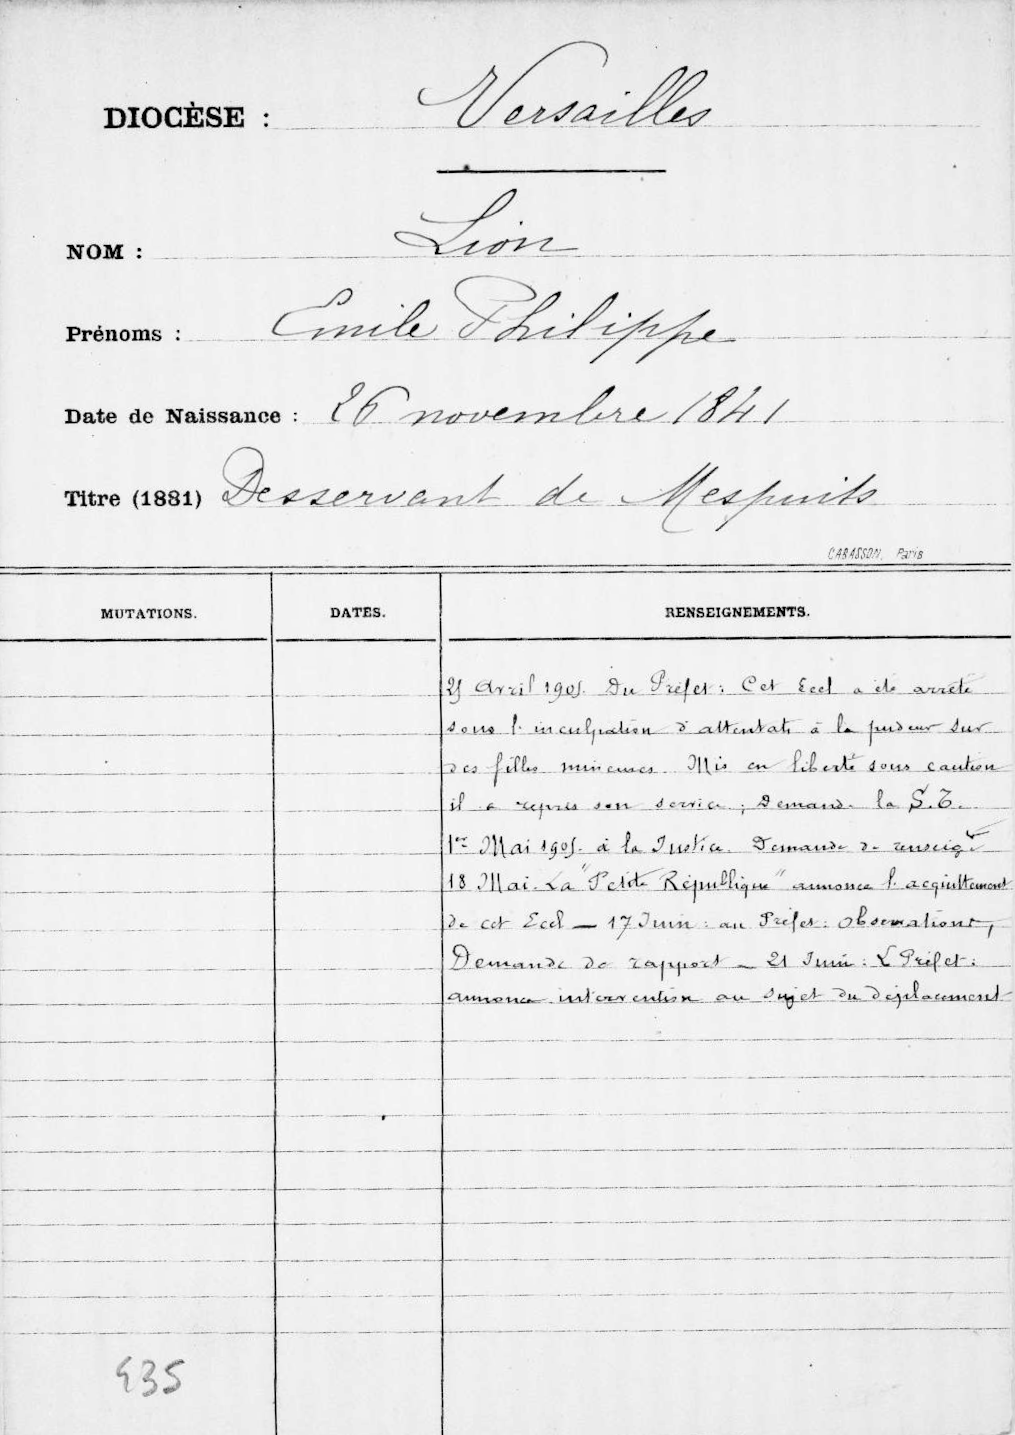 DIOCÈSE : Versailles
NOM : Lion
Prénoms : Emile Philippe
Date de Naissance : 26 novembre 1841
Titre (1881) Desservant de Mespuits
CABASSON, Paris
MUTATIONS. DATES. RENSEIGNEMENTS.
25 Avril 1905. Du Préfet : Cet Eccl a été arrêté
sous l'inculpation d'attentats à la pudeur sur
des filles mineures. Mis en liberté sous caution
il a repris son service ; Demande la S.T.
1er Mai 1905. à la Justice. Demande de renseigts
18 Mai. La "Petite République" annonce l'acquittement
de cet Eccl — 17 Juin : au Préfet : Observations,
Demande de rapport — 21 Juin : L Préfet :
annonce intervention au sujet du déplacement
435